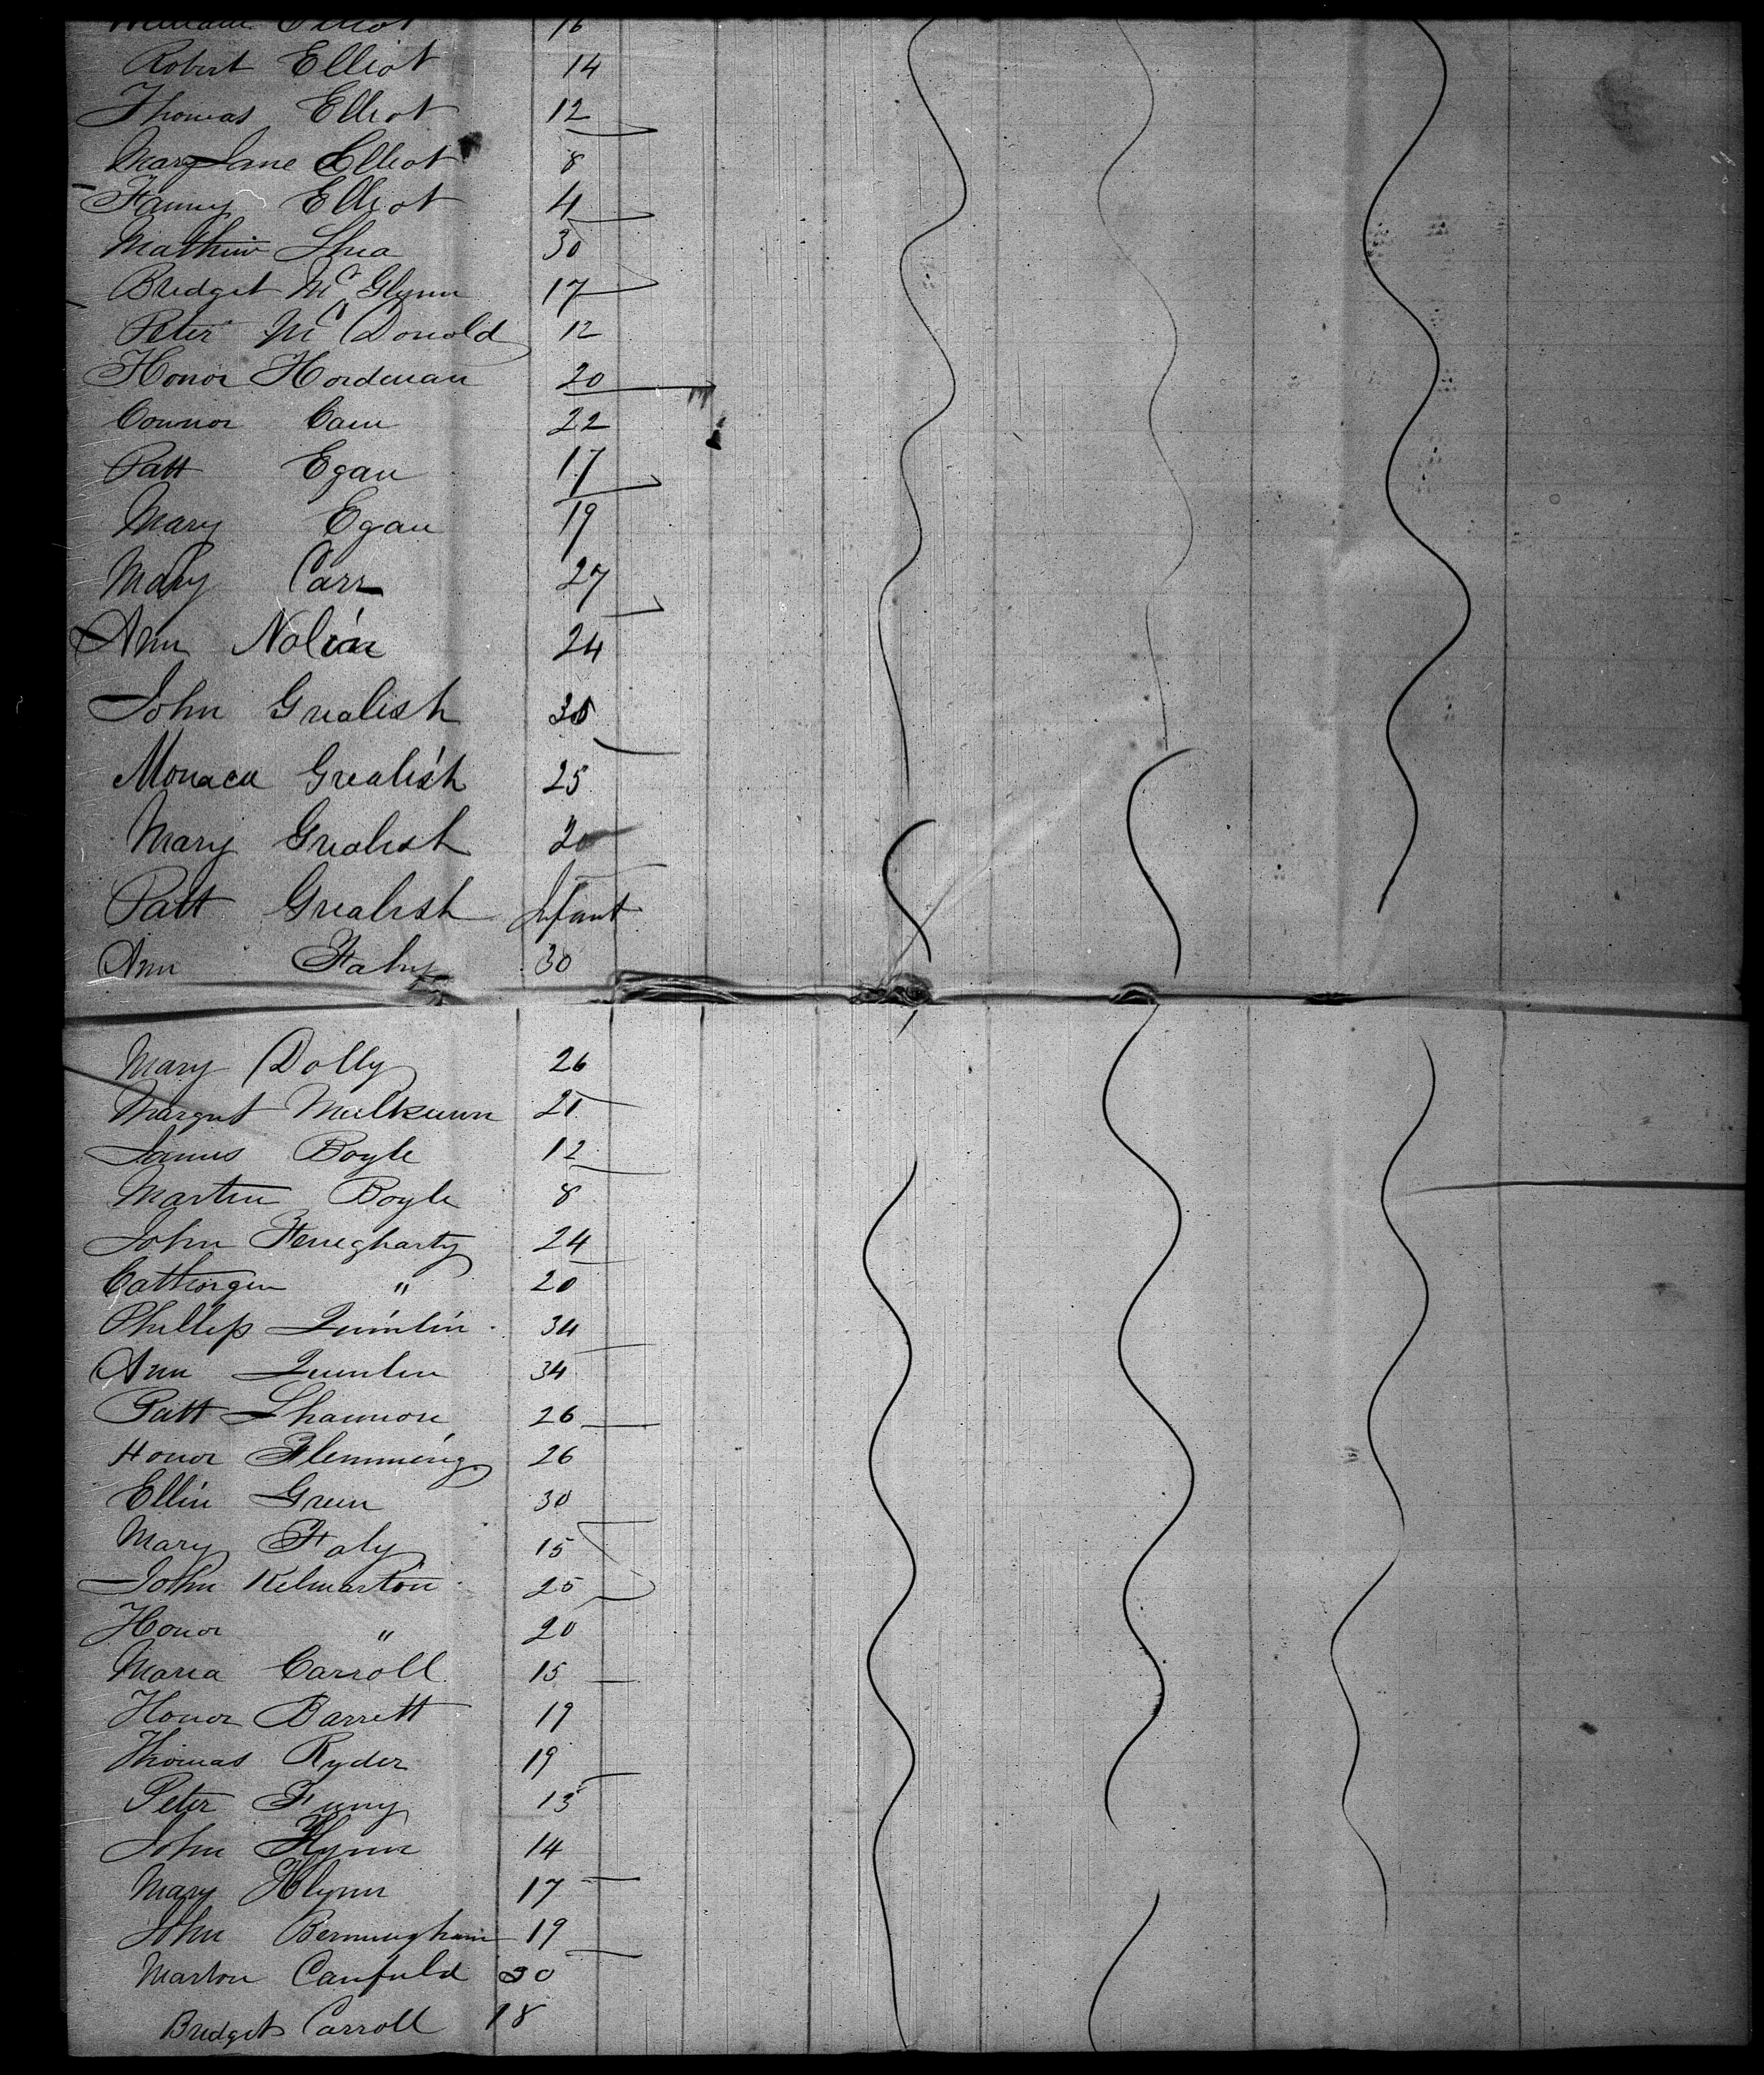 William Elliot 16
Robert Elliot 14
Thomas Elliot 12
Mary Jane Elliot 8
Fanny Elliot 4
Mathew Shea 30
Bridget Mc Glynn 17
Peter Mc Donold 12
Honor Hordeman 20
Connor Cain 22
Patt Egan 17
Mary Egan 19
Mary Carr 27
Ann Nolin 24
John Grealish
Monaca Grealish 25
Mary Grealish 20
Patt Grealish Infant
Ann Fahy 30
Mary Dolly 26
Margret 21
James Boyle 12
Martin Boyle 8
John Fenegharty 24
" 20
Phillip Quinlin 34
Ann Quinlin 34
Patt Shannon 26
Honor Flemming 26
Ellin Green 30
Mary Faly 15
John Kilmarton 25
Honor " 20
Maria Carroll 15
Honor Barrett 19
Thomas Ryder 19
Peter 13
John Flynn 14
Mary Flynn 17
John Bermingham 19
Marton Canfield 30
Bridget Carroll 18